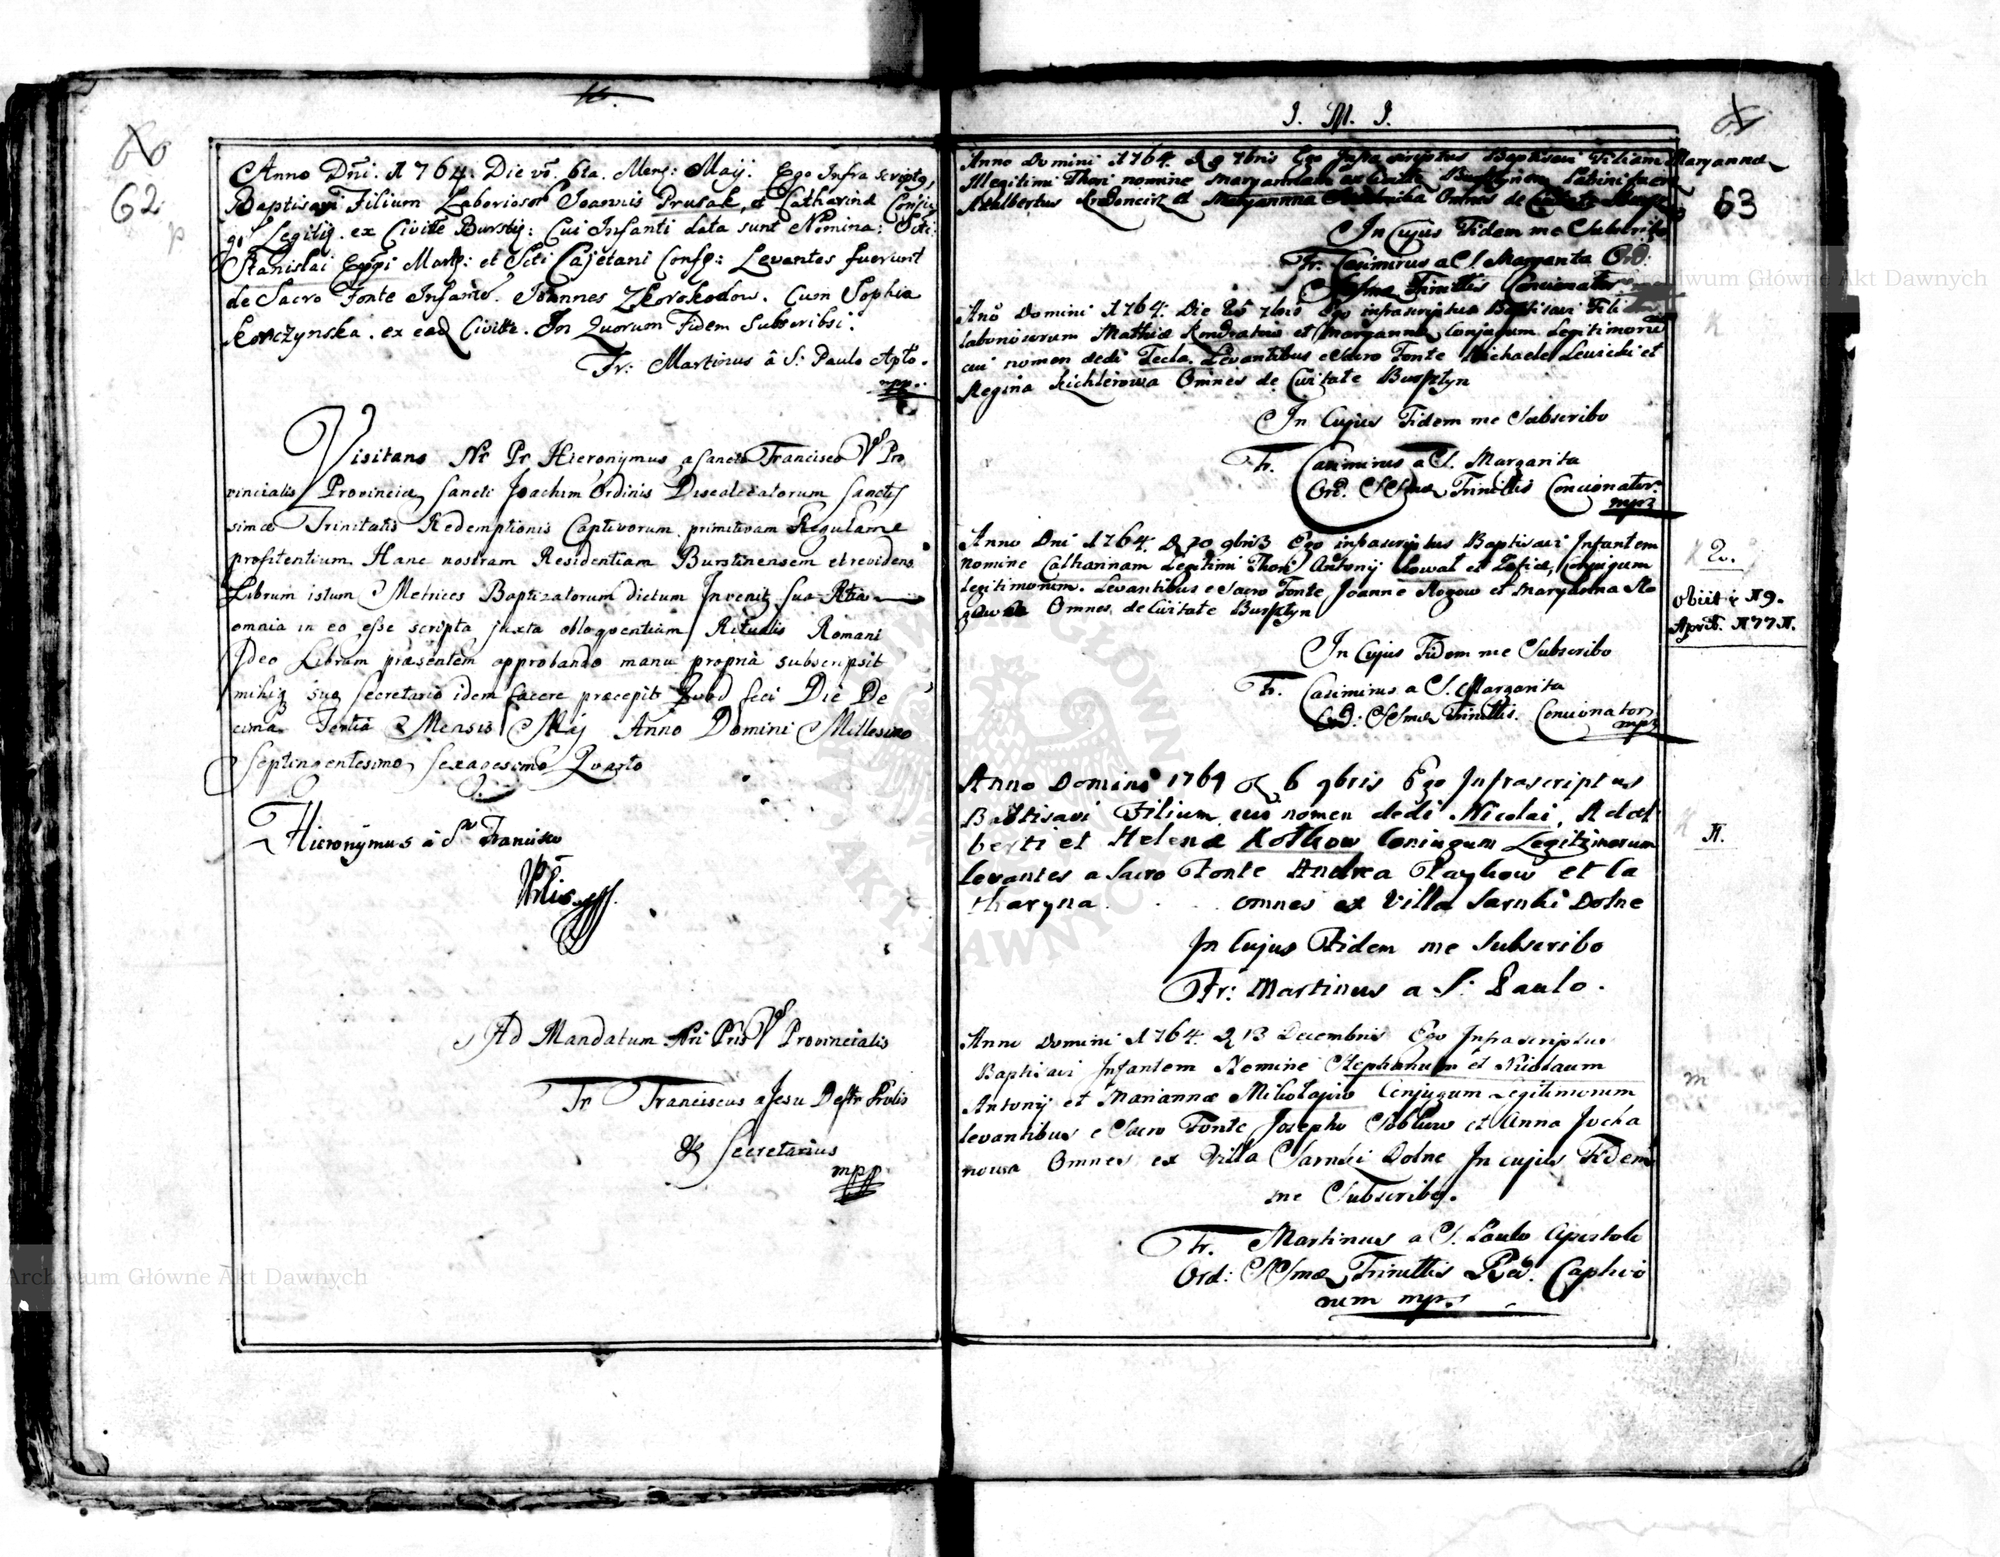 62
Anno Dñi. 1764. Die vö. 6ta. Mens: Maij. Ego Infra scriptg,
Baptisavi Filium Laboriosor Joannis Prusak, et Catharinæ Conju
Legitig. ex Civitte Burstij: Cui Infanti data sunt Nomina: Scti:
Stanislai Eppi Marty: et Scti Cajetani Confes: Levantes fuerunt
de Sacro Fonte Infante. Joannes Zkorokodow. Cum Sophia
Korczynska. ex ead Civitte. In Quorum Fidem Subscribsi.
Fr: Martinus â S: Paulo Apto.
mpp.
Visitans Nr Pr Hieronymus a Sancto Francisco Pro
vincialis Provinciæ Sancti Joachim Ordinis Discalceatorum Sanctis
simæ Trinitatis Redemptionis Captivorum primitivam Regulam
profitentium Hanc nostram Residentiam Burstinensem et revidens
Librum istum Metrices Baptizatorum dictum Invenit sua
omnia in eo esse scripta juxta Ritualis Romani
Ideo Librum præsentem approbando manu propria subscripsit
mihiq suo Secretario idem facere præcepit Quod feci Die De
cima Tertia Mensis Maij Anno Domini Millesimo
Septingentesimo Sexagesimo Quarto
Hieronymus à Sto Francisco
Ad Mandatum Nri Pris Provincialis
Fr Franciscus a Jesu
& Secretarius
mpp
J. M. J.
63
Anno Domini 1764. D 9 7bris Ego Infra scriptus Baptisavi Filiam Maryannæ
Illegitimi Thori nomine Maryannam ex Civitte Bursztynen
Adalbertus et Maryanna Omnes de Civitate
In Cujus Fidem me Subscribo
Fr. Casimirus a S. Margarita Ord:
SSmæ Trinittis Concionator
Año Domini 1764. Die 7bris Ego infrascriptus Baptisavi Fili
laboriosorum Mathiæ et Maryannæ Conjugum Legitimoru
cui nomen dedi Tecla. Levantibus e Sacro Fonte Michaele Lewicki et
Regina Richlerowa Omnes de Civitate Bursztyn
In Cujus Fidem me Subscribo
Fr. Casimirus a S. Margarita
Ord. SSmæ Trinittis Concionator.
mpr
Anno Dni 1764. D 20 9bris Ego infrascriptus Baptisavi Infantem
nomine Catharinam Legitimi Thori Antonij et Zofiæ, conjugum
legitimorum. Levantibus e Sacro Fonte Joanne Rogow et Maryanna Ro
gowa Omnes de Civitate Bursztyn
obiit 19.
April. 1771.
In Cujus Fidem me Subscribo
Fr. Casimirus a S. Margarita
Ord: SSmæ Trinittis. Concionator
mpr
Anno Domini 1764 D 6 9bris Ego Infrascriptus
Babtisavi Filium cui nomen dedi Nicolai, Adal
berti et Helenæ Kothow Coniugum Legitimorum
levantes a Sacro Fonte Andrea et Ca
tharyna. omnes ex Villa Sarnki Dolne
In Cujus Fidem me Subscribo
Fr: Martinus a S: Paulo.
Anno Domini 1764. D 13 Decembris Ego Infrascriptus
Baptisavi Infantem Nomine Stephanum et Nicolaum
Antonij et Mariannæ Mikołajow Conjugum Legitimorum
levantibus e Sacro Fonte Josepho et Anna Jucha
nowa Omnes ex Villa Sarnki Dolne In cujus Fidem
me Subscribo.
Fr. Martinus a S. Paulo Apostolo
Ord: SSmæ Trinittis Red. Captivo
rum mpr.
Archiwum Główne Akt Dawnych
Archiwum Główne Akt Dawnych